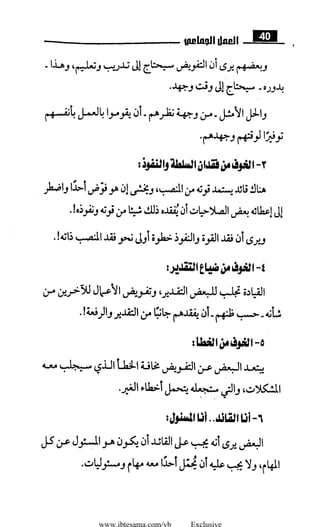 40
العمل الجماعي
وبعضهم يرى أن التفويض سيحتاج إلى تدريب وتعليم، وهذا ـ
بدوره ـ سيحتاج إلى وقت وجهد.
والحل الأمثل ـ من وجهة نظرهم ـ أن يقوموا بالعمل بأنفسهم
توفيرًا لوقتهم وجهدهم.
٣- الخوف من فقدان السلطة والنفوذ:
هناك قائد يستمد قوته من المنصب، ويخشى إن هو فوَّض أحدًا واضطر
إلى إعطائه بعض الصلاحيات أن يُفقده ذلك شيئًا من قوته ونفوذه!.
ويرى أن فقد القوة والنفوذ خطوة أولى نحو فقد المنصب ذاته!.
٤- الخوف من ضياع التقدير:
القيادة تجلب للبعض التقدير، وتفويض الأعمال للآخرين من
شأنه ـ حسب ظنهم ـ أن يفقدهم جانبًا من التقدير والرفعة!.
٥- الخوف من الخطأ:
يبتعد البعض عن التفويض مخافة الخطأ الذي سيجلب معه
المشكلات، والتي ستجعله يتحمل أخطاء الغير.
٦- أنا القائد.. أنا المسئول:
البعض يرى أنه يجب على القائد أن يكون هو المسئول عن كل
المهام، ولا يجب عليه أن يُحمِّل أحدًا معه مهام ومسئوليات.
www.ibtesama.com/vb Exclusive